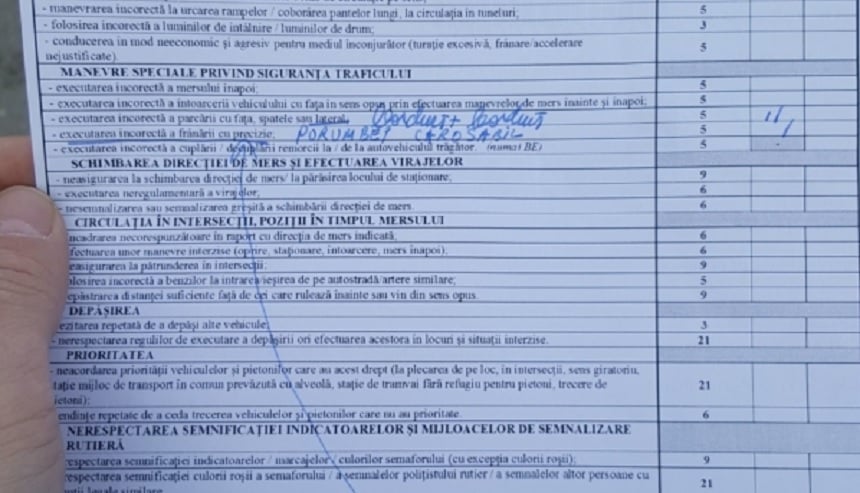 - manevrarea incorectă la urcarea rampelor / coborârea pantelor lungi, la circulația în tuneluri; 5
- folosirea incorectă a luminilor de întâlnire / luminilor de drum; 3
- conducerea în mod neeconomic și agresiv pentru mediul înconjurător (turație excesivă, frânare/accelerare nejustificate). 5
MANEVRE SPECIALE PRIVIND SIGURANȚA TRAFICULUI
- executarea incorectă a mersului înapoi; 5
- executarea incorectă a întoarcerii vehiculului cu fața în sens opus prin efectuarea manevrelor de mers înainte și înapoi; 5
- executarea incorectă a parcării cu fața, spatele sau lateral. 5
- executarea incorectă a frânării cu precizie; PORUMBEI CAROSABIL 5
- executarea incorectă a cuplării / decuplării remorcii la / de la autovehiculul trăgător. (numai BE) 5
SCHIMBAREA DIRECȚIEI DE MERS ȘI EFECTUAREA VIRAJELOR
- neasigurarea la schimbarea direcției de mers/ la părăsirea locului de staționare; 9
- executarea neregulamentară a virajelor; 6
- nesemnalizarea sau semnalizarea greșită a schimbării direcției de mers. 6
CIRCULAȚIA ÎN INTERSECȚII, POZIȚII ÎN TIMPUL MERSULUI
ncadrarea necorespunzătoare în raport cu direcția de mers indicată; 6
fectuarea unor manevre interzise (oprire, staționare, întoarcere, mers înapoi); 6
easigurarea la pătrunderea în intersecții; 9
olosirea incorectă a benzilor la intrarea/ieșirea de pe autostradă/artere similare; 5
epăstrarea distanței suficiente față de cei care rulează înainte sau vin din sens opus. 9
DEPĂȘIREA
ezitarea repetată de a depăși alte vehicule; 3
- nerespectarea regulilor de executare a depășirii ori efectuarea acestora în locuri și situații interzise. 21
PRIORITATEA
- neacordarea priorității vehiculelor și pietonilor care au acest drept (la plecarea de pe loc, în intersecții, sens giratoriu,
tație mijloc de transport în comun prevăzută cu alveolă, stație de tramvai fără refugiu pentru pietoni, trecere de 21
ietoni);
endințe repetate de a ceda trecerea vehiculelor și pietonilor care nu au prioritate. 6
NERESPECTAREA SEMNIFICAȚIEI INDICATOARELOR ȘI MIJLOACELOR DE SEMNALIZARE
RUTIERĂ
espectarea semnificației indicatoarelor / marcajelor / culorilor semaforului (cu excepția culorii roșii); 9
espectarea semnificației culorii roșii a semaforului / a semnalelor polițistului rutier / a semnalelor altor persoane cu 21